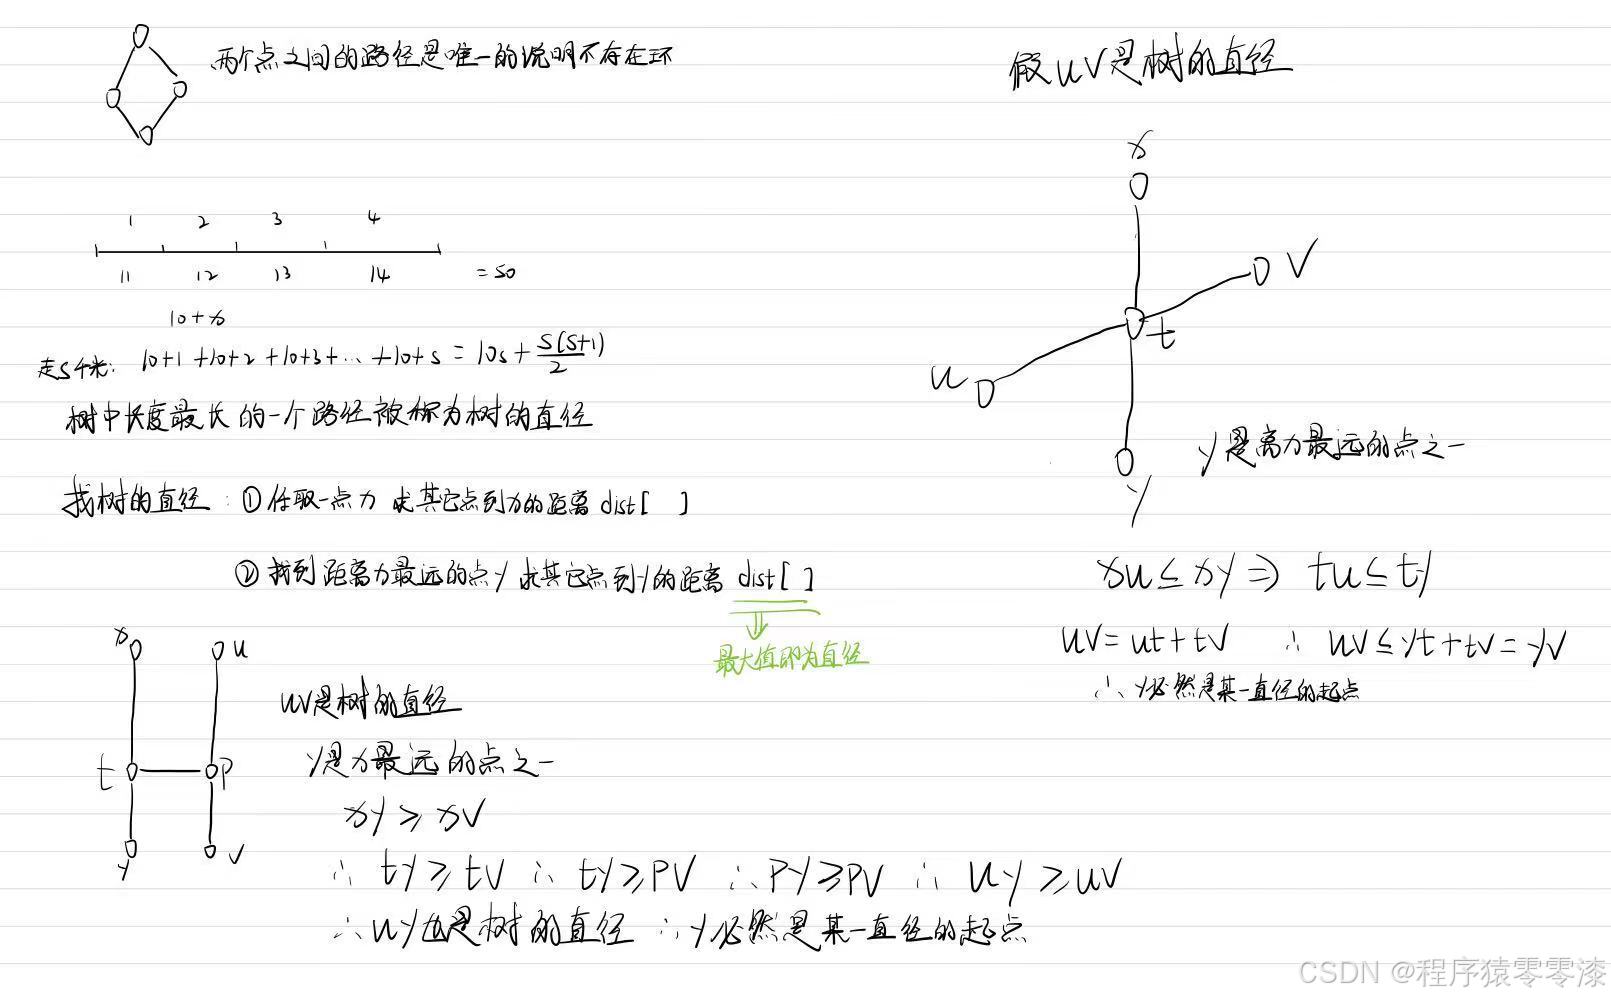 两个点之间的路径是唯一的说明不存在环
1 2 3 4
11 12 13 14 =50
10+x
走s千米: 10+1+10+2+10+3+...+10+s=10s+s(s+1)/2
树中长度最长的一个路径被称为树的直径
找树的直径: ①任取一点x 求其它点到x的距离 dist[ ]
②找到距离x最远的点y 求其它点到y的距离 dist[ ]
最大值即为直径
x u
t p
y v
uv是树的直径
y是x最远的点之一
xy≥xv
∴ ty≥tv ∴ ty≥pv ∴ py≥pv ∴ uy≥uv
∴ uy也是树的直径 ∴ y必然是某一直径的起点
假uv是树的直径
x
v
t
u
y
y是离x最远的点之一
xu≤xy⇒tu≤ty
uv=ut+tv ∴ uv≤yt+tv=yv
∴ y必然是某一直径的起点
CSDN @程序猿零零漆